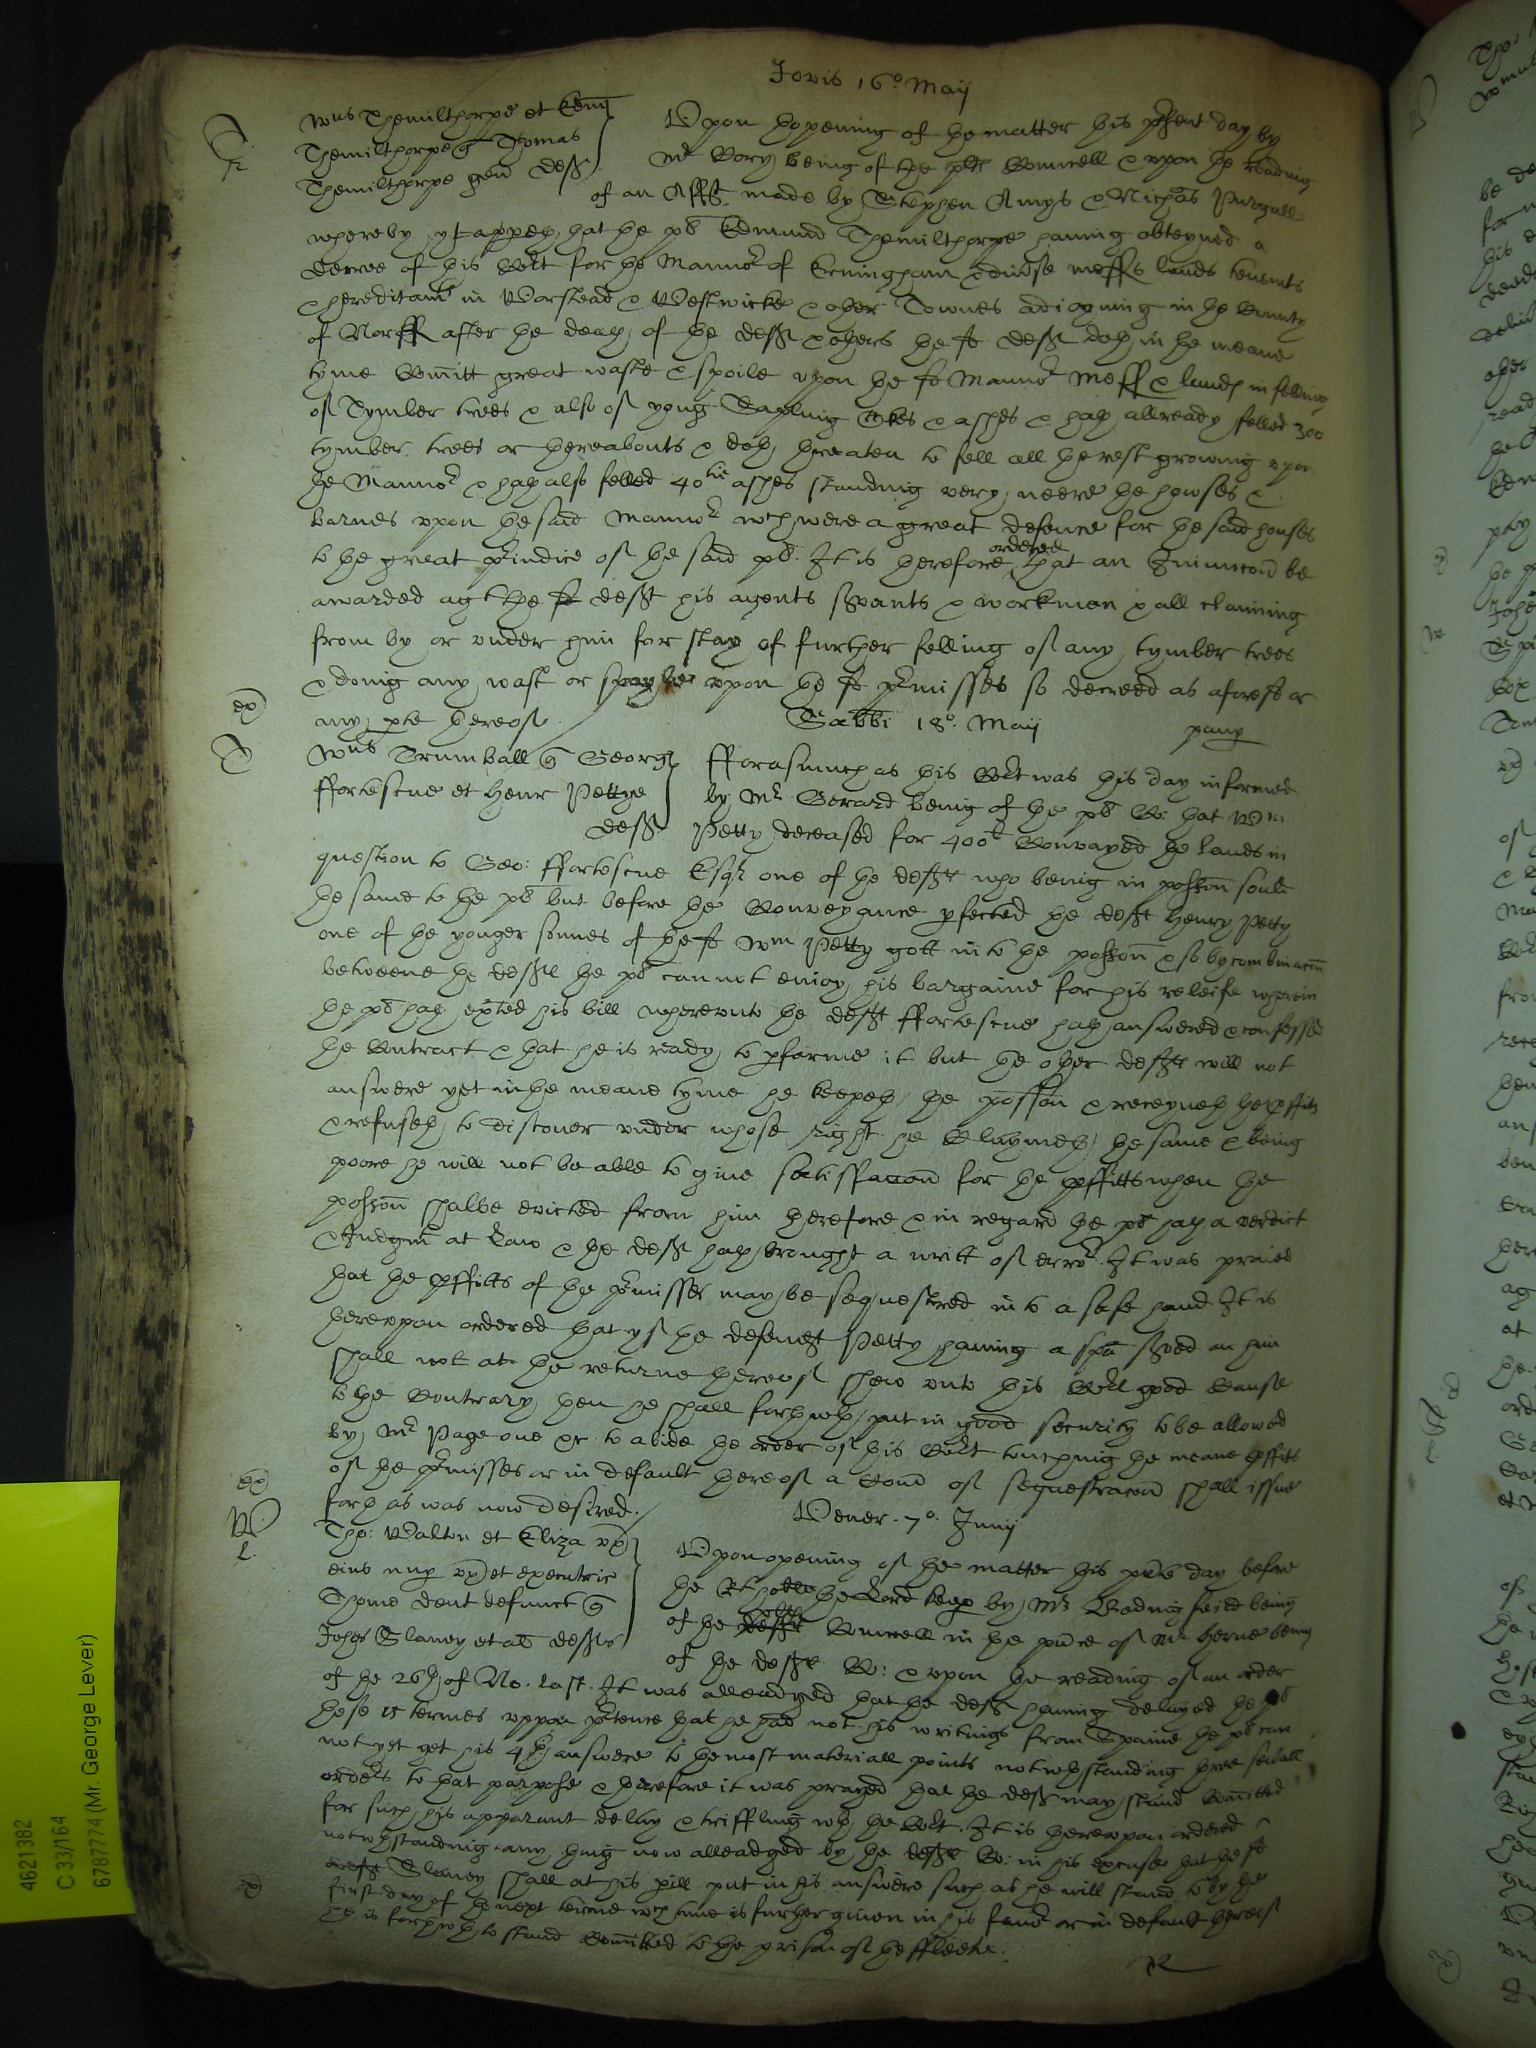 Jovis 16o Maij
Wm Themilthorpe et Edm
Themilthorpe q Thomas
Themilthorpe gen defts
Upon thopening of the matter this pñt day by
Mr Cory being of the pltes Councell & upon the reading
of an Afft made by Stephen Amys & Nichas Purgall
whereby yt appeth that the pl Edmund Themilthorpe having obteyned a
decree of this Court for the Manor of Erningham & divse messes lands tenemts
& hereditamts in Worstead & Westwicke & other Townes adioyning in the County
of Norff after the death of the deft & others the sd deft doth in the meane
tyme Comitt great waste & spoile upon the sd Mannor mess & lands in felling
of Tymber trees & also of yong Sapling Okes & ashes & hath allready felled 300
tymber trees or thereabouts & doth threaten to fell all the rest growing upon
the Mannor & hath also felled 40tie ashes standing very neere the howses &
barnes upon the said Mannor wch were a great defence for the said houses
to the great priudice of the said pl. It is therefore ordered that an Iniunccon be
awarded agt the sd deft his agents srvants & workmen & all claiming
from by or under him for stay of further felling of any tymber trees
& doing any wast or spoyle upon the sd prmisses so decreed as aforesd or
any pte thereof.
Sabbti 18o. Maij
Wm Trumball q George
ffortescue et Henr Pettye
defts
fforasmuch as this Court was this day informed
by Mr Gerard being of the pl Co: that Wm
Petty deceased for 400l Convayed the lands in
question to Geo: ffortescue Esqr one of the defts who being in possion sould
the same to the pl but before the Conveyance pfected the deft Henry Petty
one of the yonger sonnes of the sd Wm Petty gott into the possion & so by combinacon
betweene the defts the pl cannot enioy his bargaine for his releife wherein
the pl hath exted his bill whereunto the deft ffortescue hath answered & confessed
the Contract & that he is ready to pforme it but the other deft will not
answere yet in the meane tyme he keepeth the possion & receyveth the pffitts
& refuseth to discover under whose right he Claymeth the same & being
poore he will not be able to give satisfaccon for the pffitts when the
possion shalbe evicted from him therefore & in regard the pl hath a verdict
& Judgmt at Law & the deft hath brought a writt of error. It was praied
that the pffitts of the prmisses may be sequestred into a safe hand It is
thereupon ordered that yf the defendt Petty having a spa srved on him
shall not at the returne thereof shew unto this Court good Cause
to the Contrary then he shall forthwth put in good security to be allowed
by Mr Page one &c to abide the order of this Court touching the meane pffitts
of the prmisses or in default thereof a Com of sequestracon shall issue
forth as was now desired.
Vener. 7o Junij
Tho: Walton et Eliza ux
eius nup ux et executric
Thome Dent defunct q
Johes Slaney et al defts
Upon opening of the matter this pnte day before
the Rt hoble the Lord keep by Mr Bedingfeild being
of the pltes Councell in the pnce of Mr Herne being
of the defts Co: & upon the reading of an order
of the 26th of No. last. It was alleadged that the deft having delayed the pl
these 15 termes uppon prtence that he had not his writings from Spaine the pl can
not yet get his 4th answere to the most materiall points notwthstanding three sevall
orders to that purpose & therefore it was prayed that the deft may stand Comitted
for such his apparant delay & triffling wth the Court. It is thereupon ordered
notwthstanding any thing now alleadged by the defts Co: in his excuse that the sd
deft Slaney shall at his pill put in his answere such as he will stand to by the
first day of the next terme wch time is further given in his favor or in default thereof
he is forthwth to stand Comitted to the prison of the ffleete.
4621382
C 33/164
6787774 (Mr. George Lever)